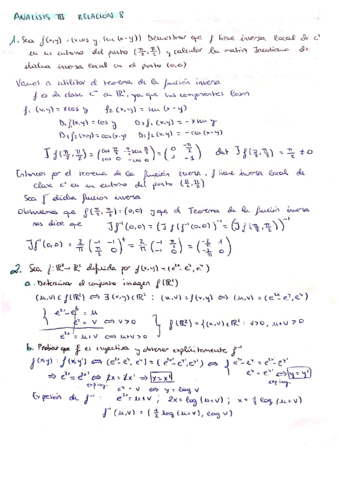 ANÁLISIS III RELACIÓN 8
1. Sea f(x,y) = (x cos y, sen(x-y)) Demostrar que f tiene inversa local de C¹
en un entorno del punto (π/2, π/2) y calcular la matriz Jacobiana de
dicha inversa local en el punto (0,0)
Vamos a utilizar el teorema de la función inversa
f es de clase C^∞ en ℝ², ya que sus componentes lo son
f₁(x,y) = x cos y f₂(x,y) = sen(x-y)
D₁f₁(x,y) = cos y D₂f₁(x,y) = -x sen y
D₁f₂(x,y) = cos(x-y) D₂f₂(x,y) = -cos(x-y)
Jf(π/2, π/2) = (cos π/2 -π/2 sen π/2 / cos 0 -cos 0) = (0 -π/2 / 1 -1) det Jf(π/2, π/2) = π/2 ≠ 0
Entonces por el teorema de la función inversa, f tiene inversa local de
clase C¹ en un entorno del punto (π/2, π/2)
Sea f⁻¹ dicha función inversa
Observemos que f(π/2, π/2) = (0,0) y que el Teorema de la función inversa
nos dice que Jf⁻¹(0,0) = (Jf(f⁻¹(0,0)))⁻¹ = (Jf(π/2, π/2))⁻¹
2. Sea f: ℝ² → ℝ² definida por f(x,y) = (e²ˣ - eʸ, eʸ)
a. Determina el conjunto imagen f(ℝ²)
(u,v) ∈ f(ℝ²) ⟺ ∃ (x,y) ∈ ℝ² : (u,v) = f(x,y) ⟺ (u,v) = (e²ˣ - eʸ, eʸ)
e²ˣ - eʸ = u
eʸ = v ⟺ v > 0 f(ℝ²) = {(u,v) ∈ ℝ² : v > 0, u+v > 0}
e²ˣ = u+v ⟺ u+v > 0
b. Probar que f es inyectiva y obtener explícitamente f⁻¹
f(x,y) = f(x',y') ⟺ (e²ˣ - eʸ, eʸ) = (e²ˣ' - eʸ', eʸ') ⟺ { e²ˣ - eʸ = e²ˣ' - eʸ'
eʸ = eʸ' ⟺ y = y'
⟹ e²ˣ = e²ˣ' ⟺ 2x = 2x' ⟹ x = x'
eʸ = v ⟺ y = log v
Expresión de f⁻¹ e²ˣ = u+v ; 2x = log(u+v) ; x = ½ log(u+v)
f⁻¹(u,v) = (½ log(u+v), log v)